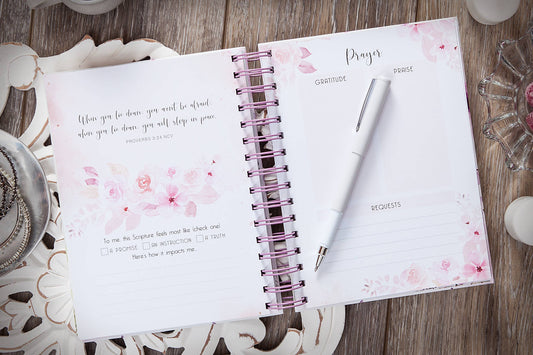 When you lie down, you won't be afraid;
when you lie down, you will sleep in peace.
PROVERBS 3:24 NCV
To me, this Scripture feels most like (check one):
A PROMISE AN INSTRUCTION A TRUTH
Here's how it impacts me...
Prayer
GRATITUDE PRAISE
REQUESTS